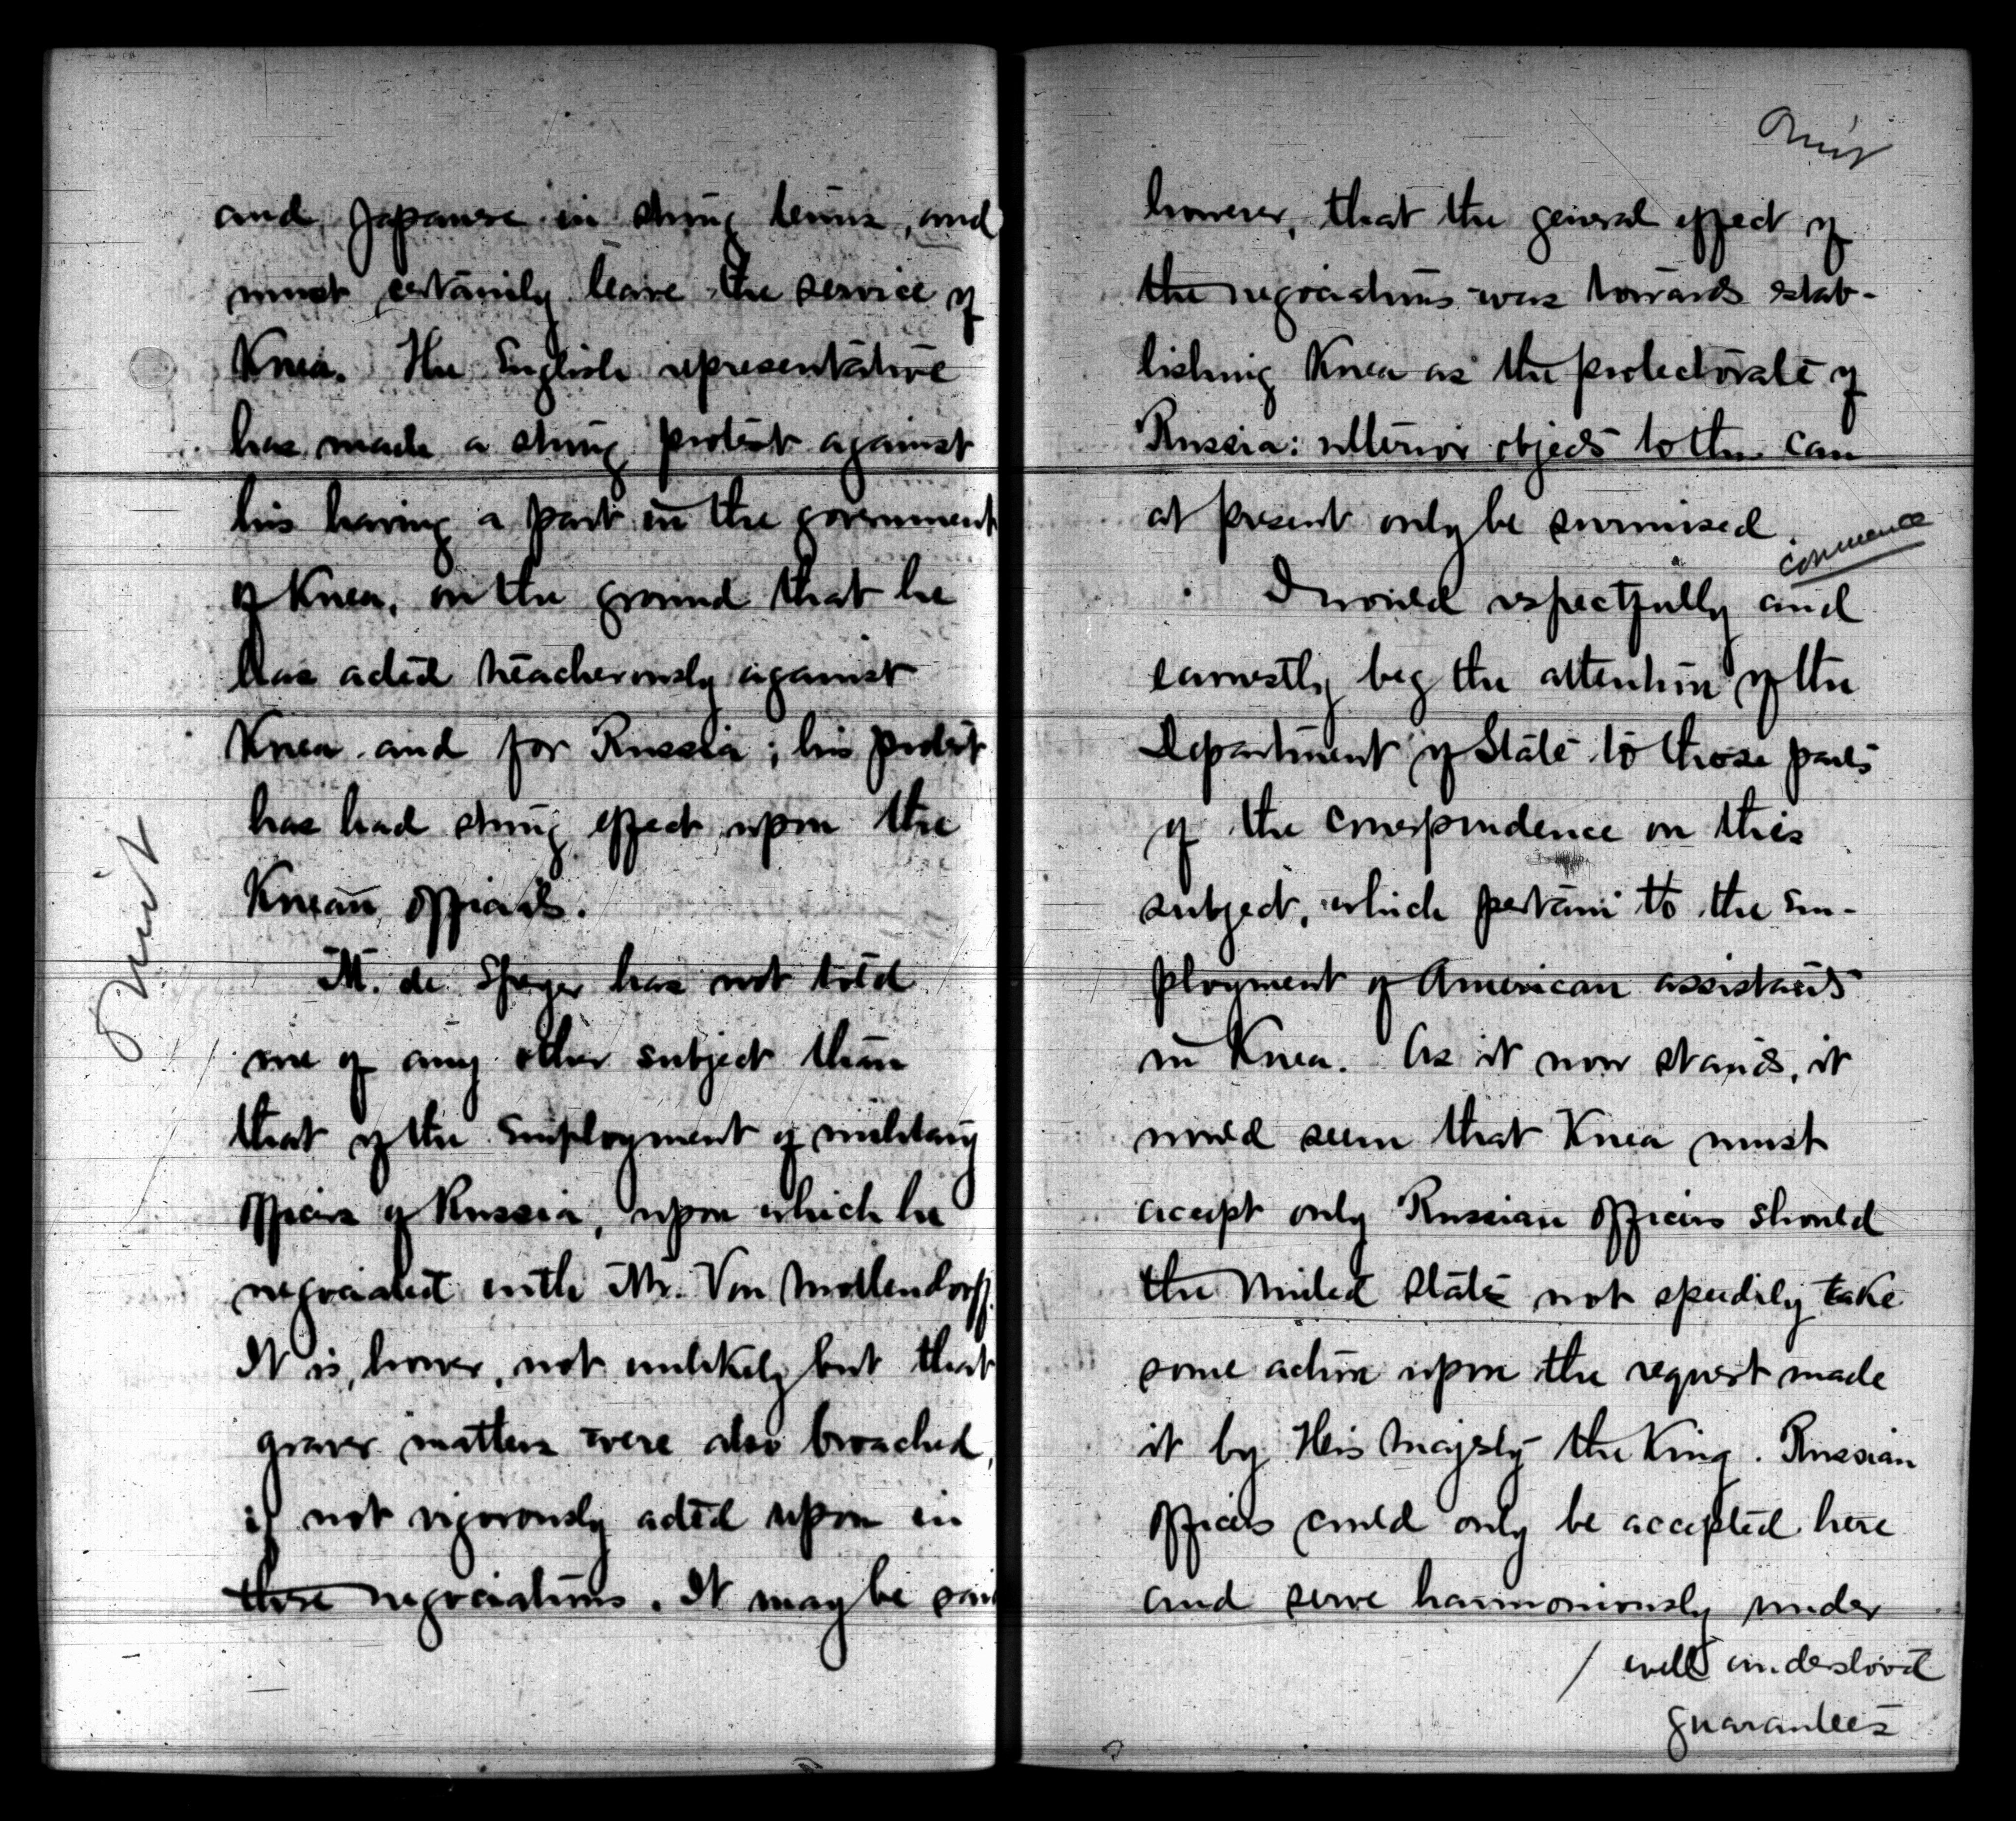 and Japanese in strong terms, and
must certainly leave the service of
Korea. The English representative
has made a strong protest against
his having a part in the government
of Korea, on the ground that he
has acted treacherously against
Korea and for Russia; his protest
has had strong effect upon the
Korean officials.
M. de Speyer has not told
me of any other subject than
that of the employment of military
officers of Russia, upon which he
negociated with Mr. Von Mollendorff.
It is, hower, not unlikely but that
graver matters were also broached,
if not vigorously acted upon in
these negociations. It may be said
Omit
Omit
however, that the general effect of
the negociations was towards estab-
lishing Korea as the protectorate of
Russia: ulterior objects to this can
at present only be surmised.
commence
I would respectfully and
earnestly beg the attention of the
Department of State to those parts
of the correspondence on this
subject, which pertain to the em-
ployment of American assistants
in Korea. As it now stands, it
would seem that Korea must
accept only Russian officers should
the United States not speedily take
some action upon the request made
it by His Majesty the King. Russian
officers could only be accepted here
and serve harmoniously under
/ well understood
guarantees